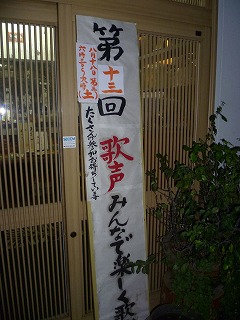 第十三回
歌声
みんなで楽しく歌
八月十八日 第三(土)
たくさん参加お待ちしています